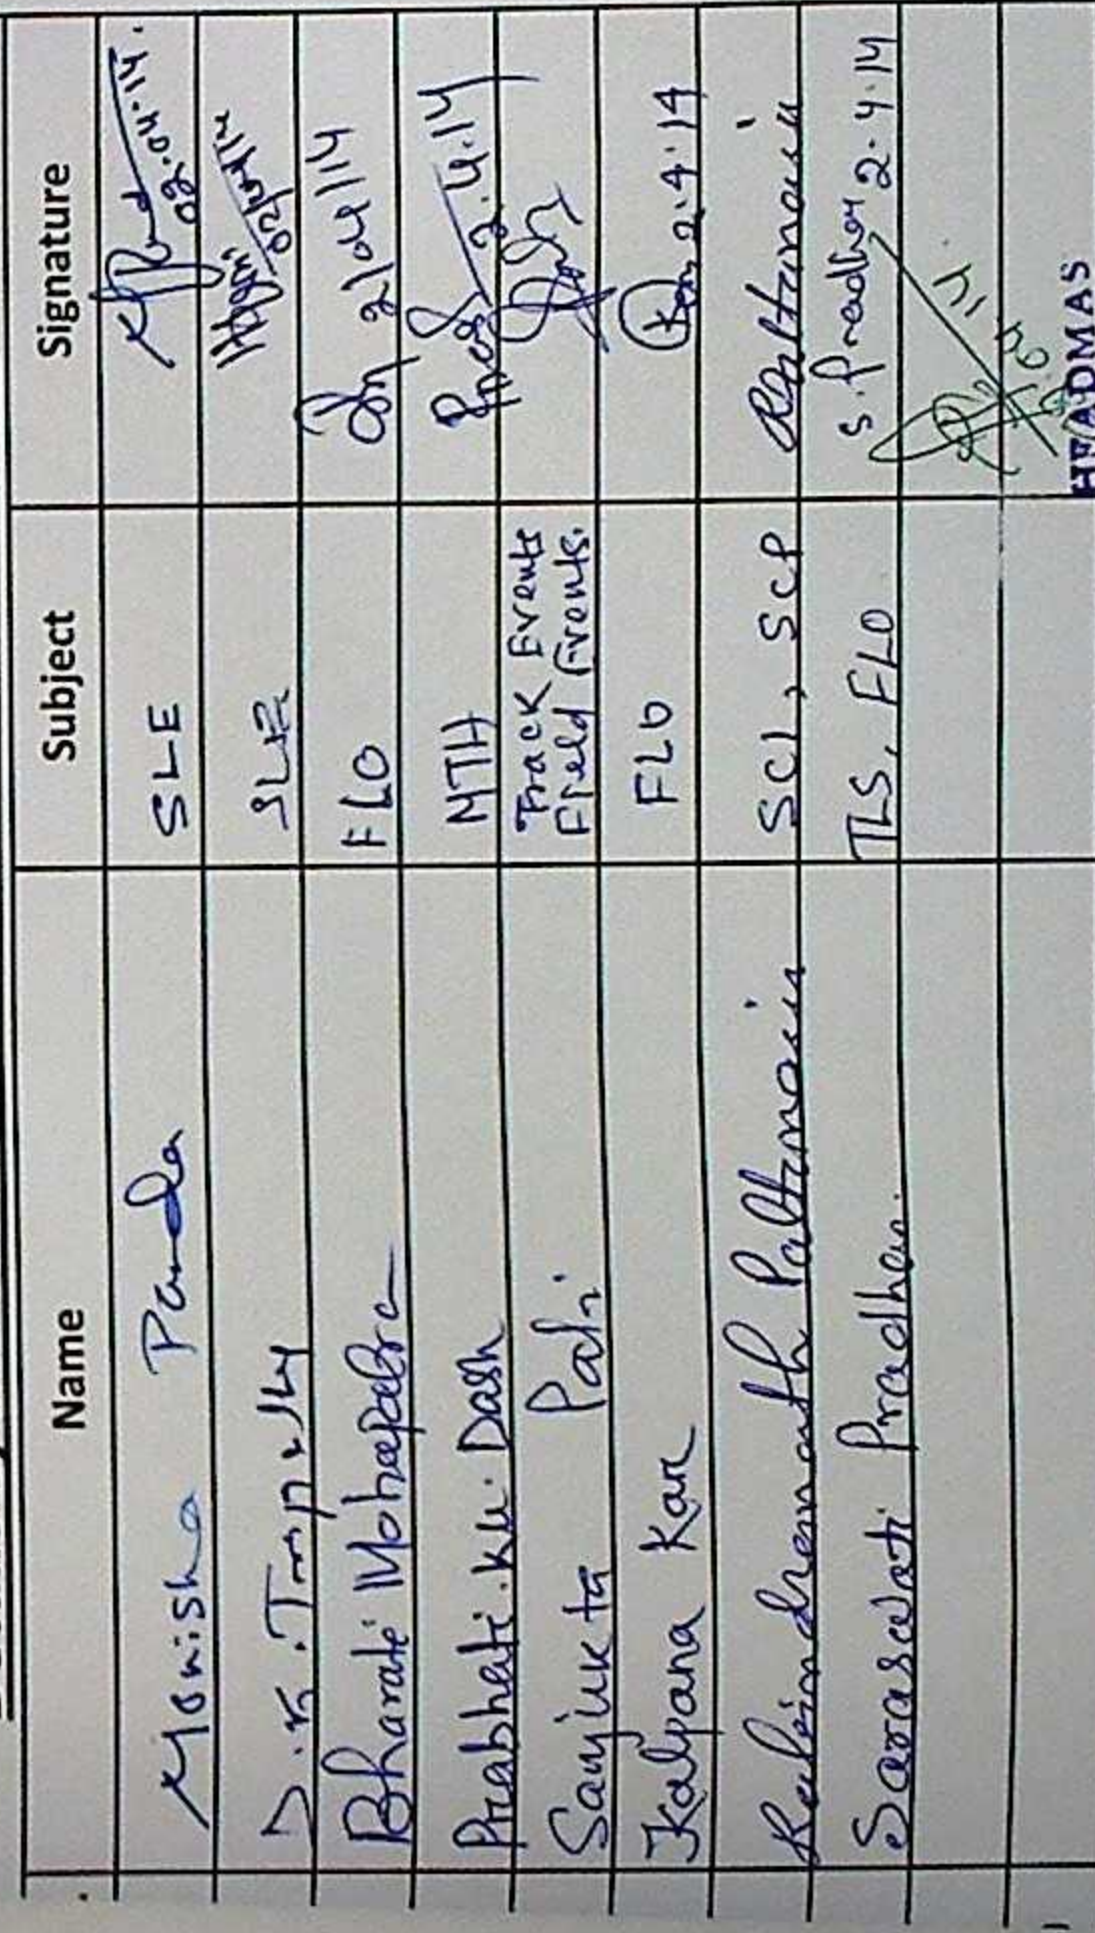 Name Subject Signature
Monisha Panda SLE 02.04.14.
D.K. Tripathy SLE 02/04/14
Bharati Mohapatra FLO 2/04/14
Prabhati. Ku. Dash MTH 2.4.14
Sanjukta Padhi Track Events
Field Events.
Kalpana Kar FLO 2.4.14
Rabindranath Pattanaik SCI, SCP
Saraswati Pradhan. TLS, FLO S. Pradhan 2.4.14
HEADMAS